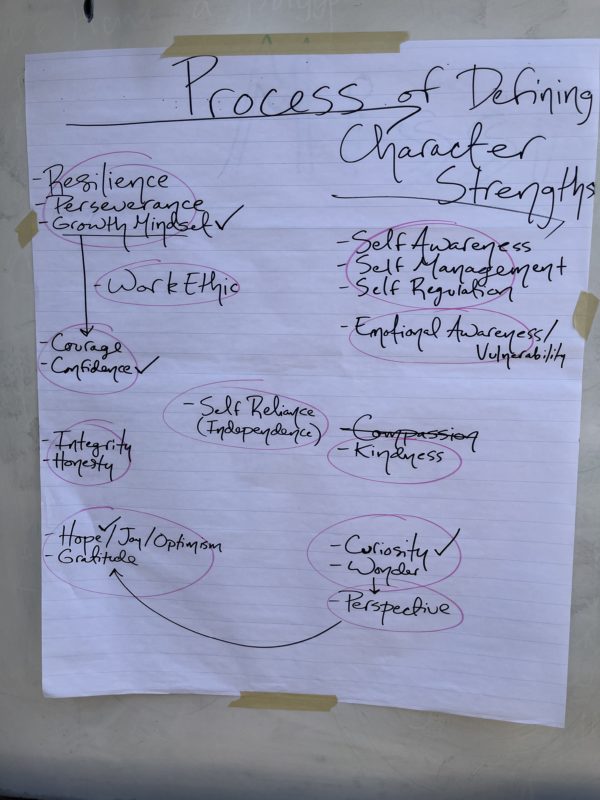 Process of Defining
Character
Strengths
- Resilience
- Perseverance
- Growth Mindset ✓
- Work Ethic
- Courage
- Confidence ✓
- Self Awareness
- Self Management
- Self Regulation
- Emotional Awareness/
Vulnerability
- Self Reliance
(Independence)
- Integrity
- Honesty
- Compassion
- Kindness
- Hope✓/Joy/Optimism
- Gratitude
- Curiosity ✓
- Wonder
- Perspective